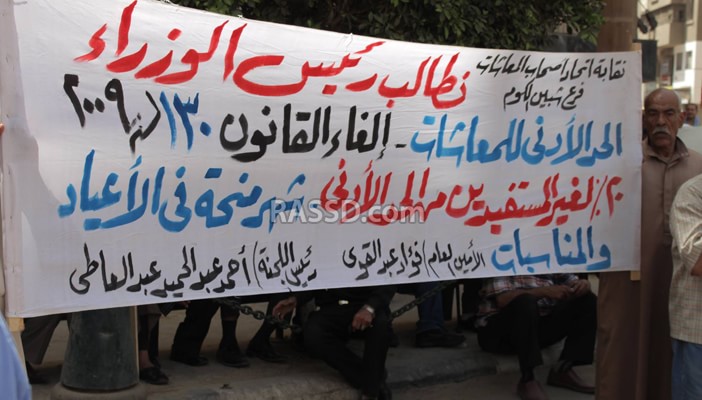 نقابة اتحاد اصحاب المعاشات
فرع شبين الكوم
نطالب رئيس الوزراء
الحد الأدنى للمعاشات - إلغاء القانون ١٣٠ لـ ٢٠٠٩
٢٠٪ لغير المستفيدين من الحد الأدنى شهر منحة فى الأعياد
والمناسبات الأمين العام / فؤاد عبد القوى رئيس اللجنة / أحمد عبد الحميد عبد العاطى
RASSD.com